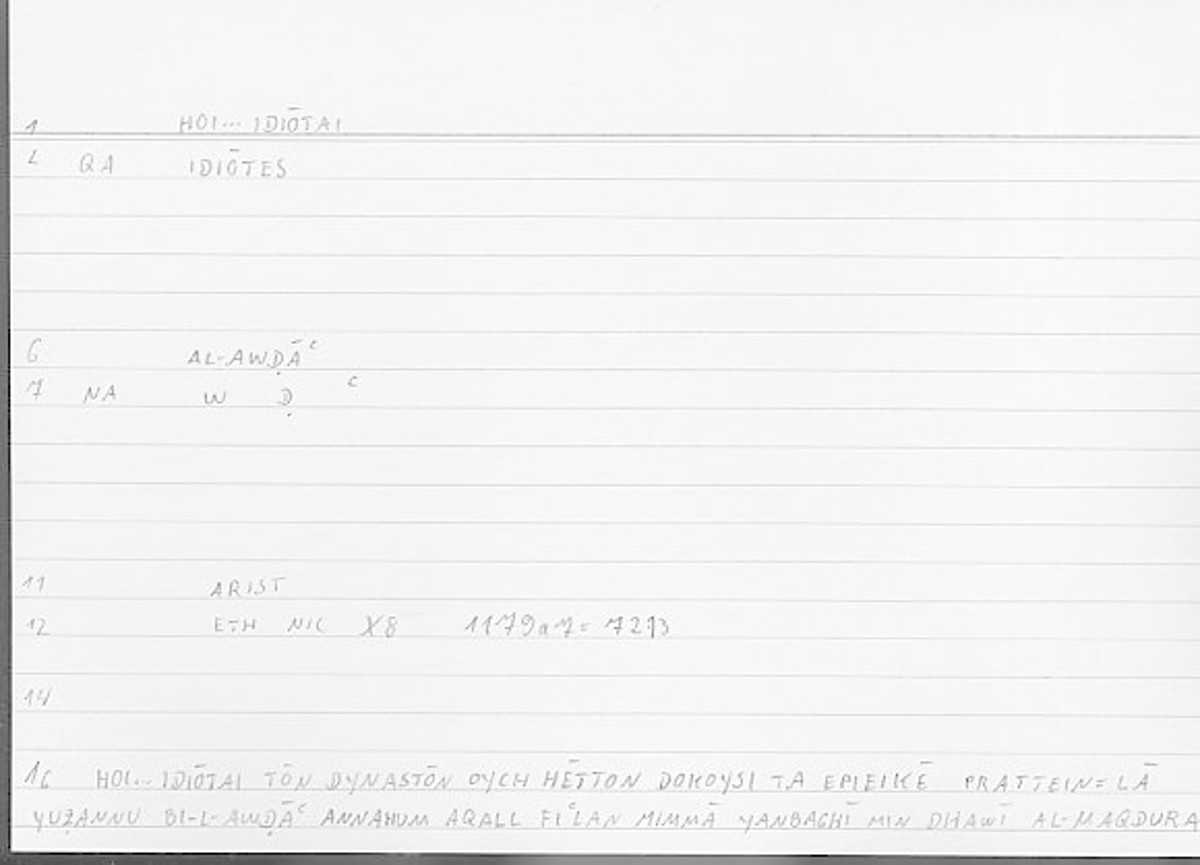 1 HOI... IDIŌTAI
2 QA IDIŌTES
6 AL-AWḌĀʿ
7 NA W Ḍ ʿ
11 ARIST
12 ETH NIC X8 1179a7= 7213
14
16 HOI... IDIŌTAI TŌN DYNASTŌN OYCH HĒTTON DOKOYSI TA EPIEIKĒ PRATTEIN= LĀ
YUẒANNU BI-L-AWḌĀʿ ANNAHUM AQALL FIʿLAN MIMMĀ YANBAGHĪ MIN DHAWĪ AL-MAQDURA